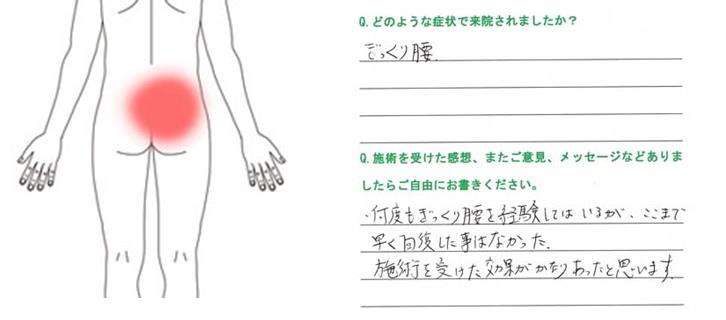 Q.どのような症状で来院されましたか？
ぎっくり腰
Q.施術を受けた感想、またご意見、メッセージなどありま
したらご自由にお書きください。
・何度もぎっくり腰を経験してはいるが、ここまで
早く回復した事はなかった。
施術を受けた効果がかなりあったと思います。